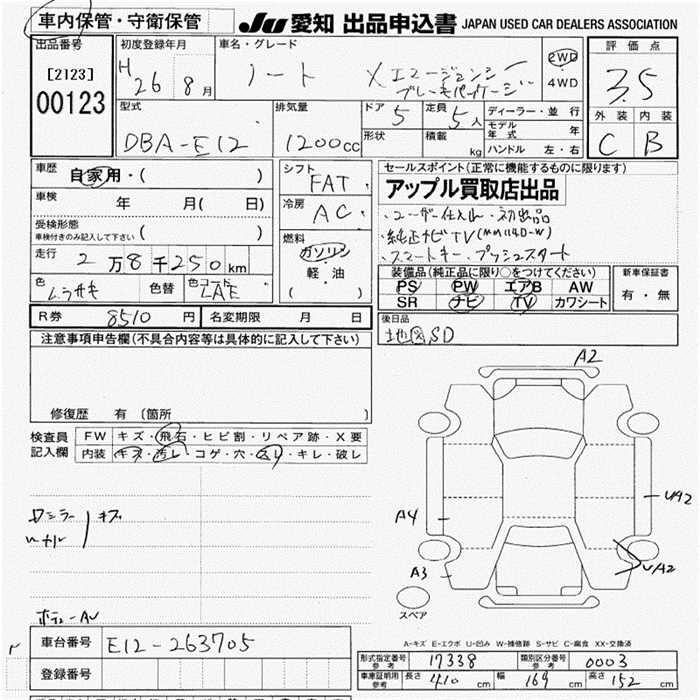 車内保管・守衛保管 JU 愛知 出品申込書 JAPAN USED CAR DEALERS ASSOCIATION
出品番号 初度登録年月 車名・グレード 評価点
[2123] H 26 8月 ノート X エマージェンシー 2WD 3.5
00123 ブレーキパッケージ 4WD
型式 排気量 ドア 5 定員 5人 ディーラー・並行 外装 内装
DBA-E12 1200cc 形状 積載 kg モデル年式 年 C B
ハンドル 左・右
車歴 自家用・( ) シフト FAT セールスポイント(正常に機能するものに限ります)
車検 年 月( 日) 冷房 AC アップル買取店出品
受検形態 ・ユーザー仕入れ・初出品
車検付きのみ記入して下さい ( ) 燃料 ・純正ナビTV(MM114D-W)
走行 2万8千250km ガソリン ・スマートキー・プッシュスタート
軽・油 装備品(純正品に限り○をつけてください) 新車保証書
色 ムラサキ 色替 色コード LAE ( ) PS PW エアB AW 有・無
SR ナビ TV カワシート
R券 8510円 名変期限 月 日 後日品
注意事項申告欄(不具合内容等は具体的に記入して下さい) 地図SD
A2
修復歴 有 (箇所 )
検査員 FW キズ・飛石・ヒビ割・リペア跡・X要
記入欄 内装 キズ・汚レ・コゲ・穴・スレ・キレ・破レ
UA2
A4
キズ
A3 UA2
スペア
A-キズ E-エクボ U-凹み W-補修跡 S-サビ C-腐食 XX-交換済
車台番号 E12-263705
形式指定番号 参考 17338 類別区分番号 参考 0003
登録番号 車庫証明用 参考 長さ 410cm 幅 169cm 高さ 152cm